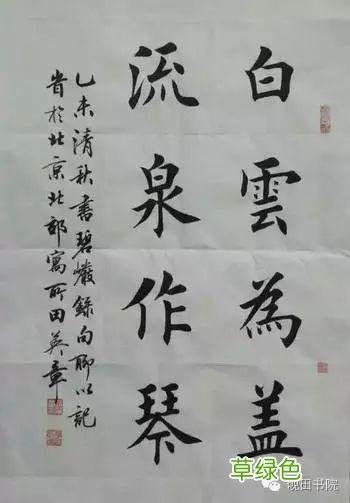 白雲為盖
流泉作琴
乙未清秋書碧巖錄句聊以記
昔於北京北郊寓所田英章
草绿色
砚田书院